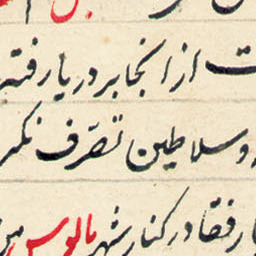 ت از انجا بر در یا رفته
و سلاطین تصرّف نکر
رفقا در کنار شهر بالوس